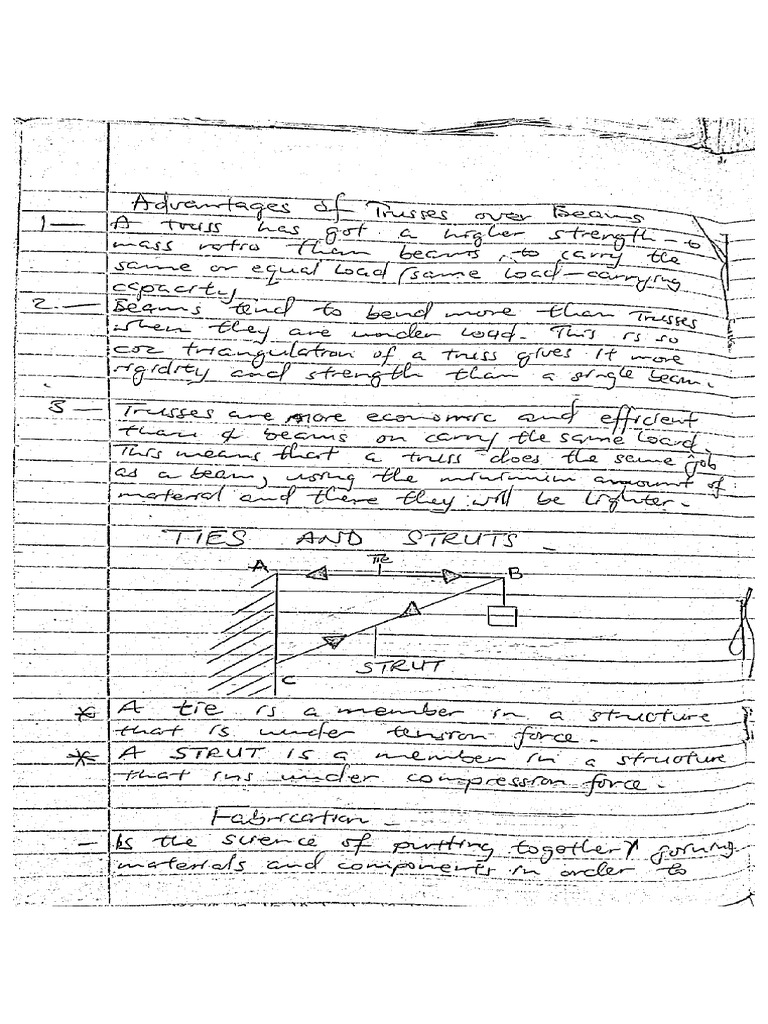 Advantages of Trusses over Beams
1 — A truss has got a higher strength-to
mass ratio than beams, to carry the
same or equal load (same load-carrying
capacity.
2. — Beams tend to bend more than Trusses
when they are under load. This is so
coz triangulation of a truss gives it more
rigidity and strength than a single beam.
3 — Trusses are more economic and efficient
than beams on carry the same load.
This means that a truss does the same job
as a beam, using the minimum amount of
material and there they will be lighter.
TIES AND STRUTS
Tie
A
B
STRUT
C
* A tie is a member in a structure
that is under tension force.
* A STRUT is a member in a structure
that ins under compression force.
Fabrication
— Is the science of putting together/ joining
materials and components in order to